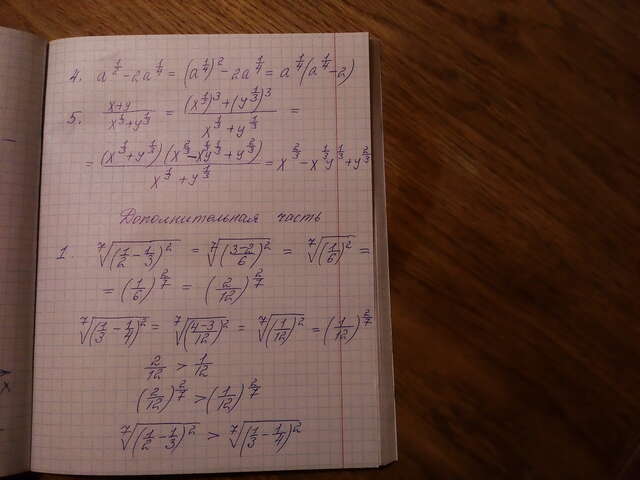 4. a^(1/2) - 2a^(1/4) = (a^(1/4))^2 - 2a^(1/4) = a^(1/4)(a^(1/4) - 2)
5. (x+y)/(x^(1/3)+y^(1/3)) = ((x^(1/3))^3 + (y^(1/3))^3)/(x^(1/3)+y^(1/3)) =
= (x^(1/3)+y^(1/3))(x^(2/3)-x^(1/3)y^(1/3)+y^(2/3))/(x^(1/3)+y^(1/3)) = x^(2/3) - x^(1/3)y^(1/3) + y^(2/3)
Дополнительная часть
1. ⁷√((1/2 - 1/3)^2) = ⁷√(((3-2)/6)^2) = ⁷√((1/6)^2) =
= (1/6)^(2/7) = (2/12)^(2/7)
⁷√((1/3 - 1/4)^2) = ⁷√(((4-3)/12)^2) = ⁷√((1/12)^2) = (1/12)^(2/7)
2/12 > 1/12
(2/12)^(2/7) > (1/12)^(2/7)
⁷√((1/2 - 1/3)^2) > ⁷√((1/3 - 1/4)^2)
x